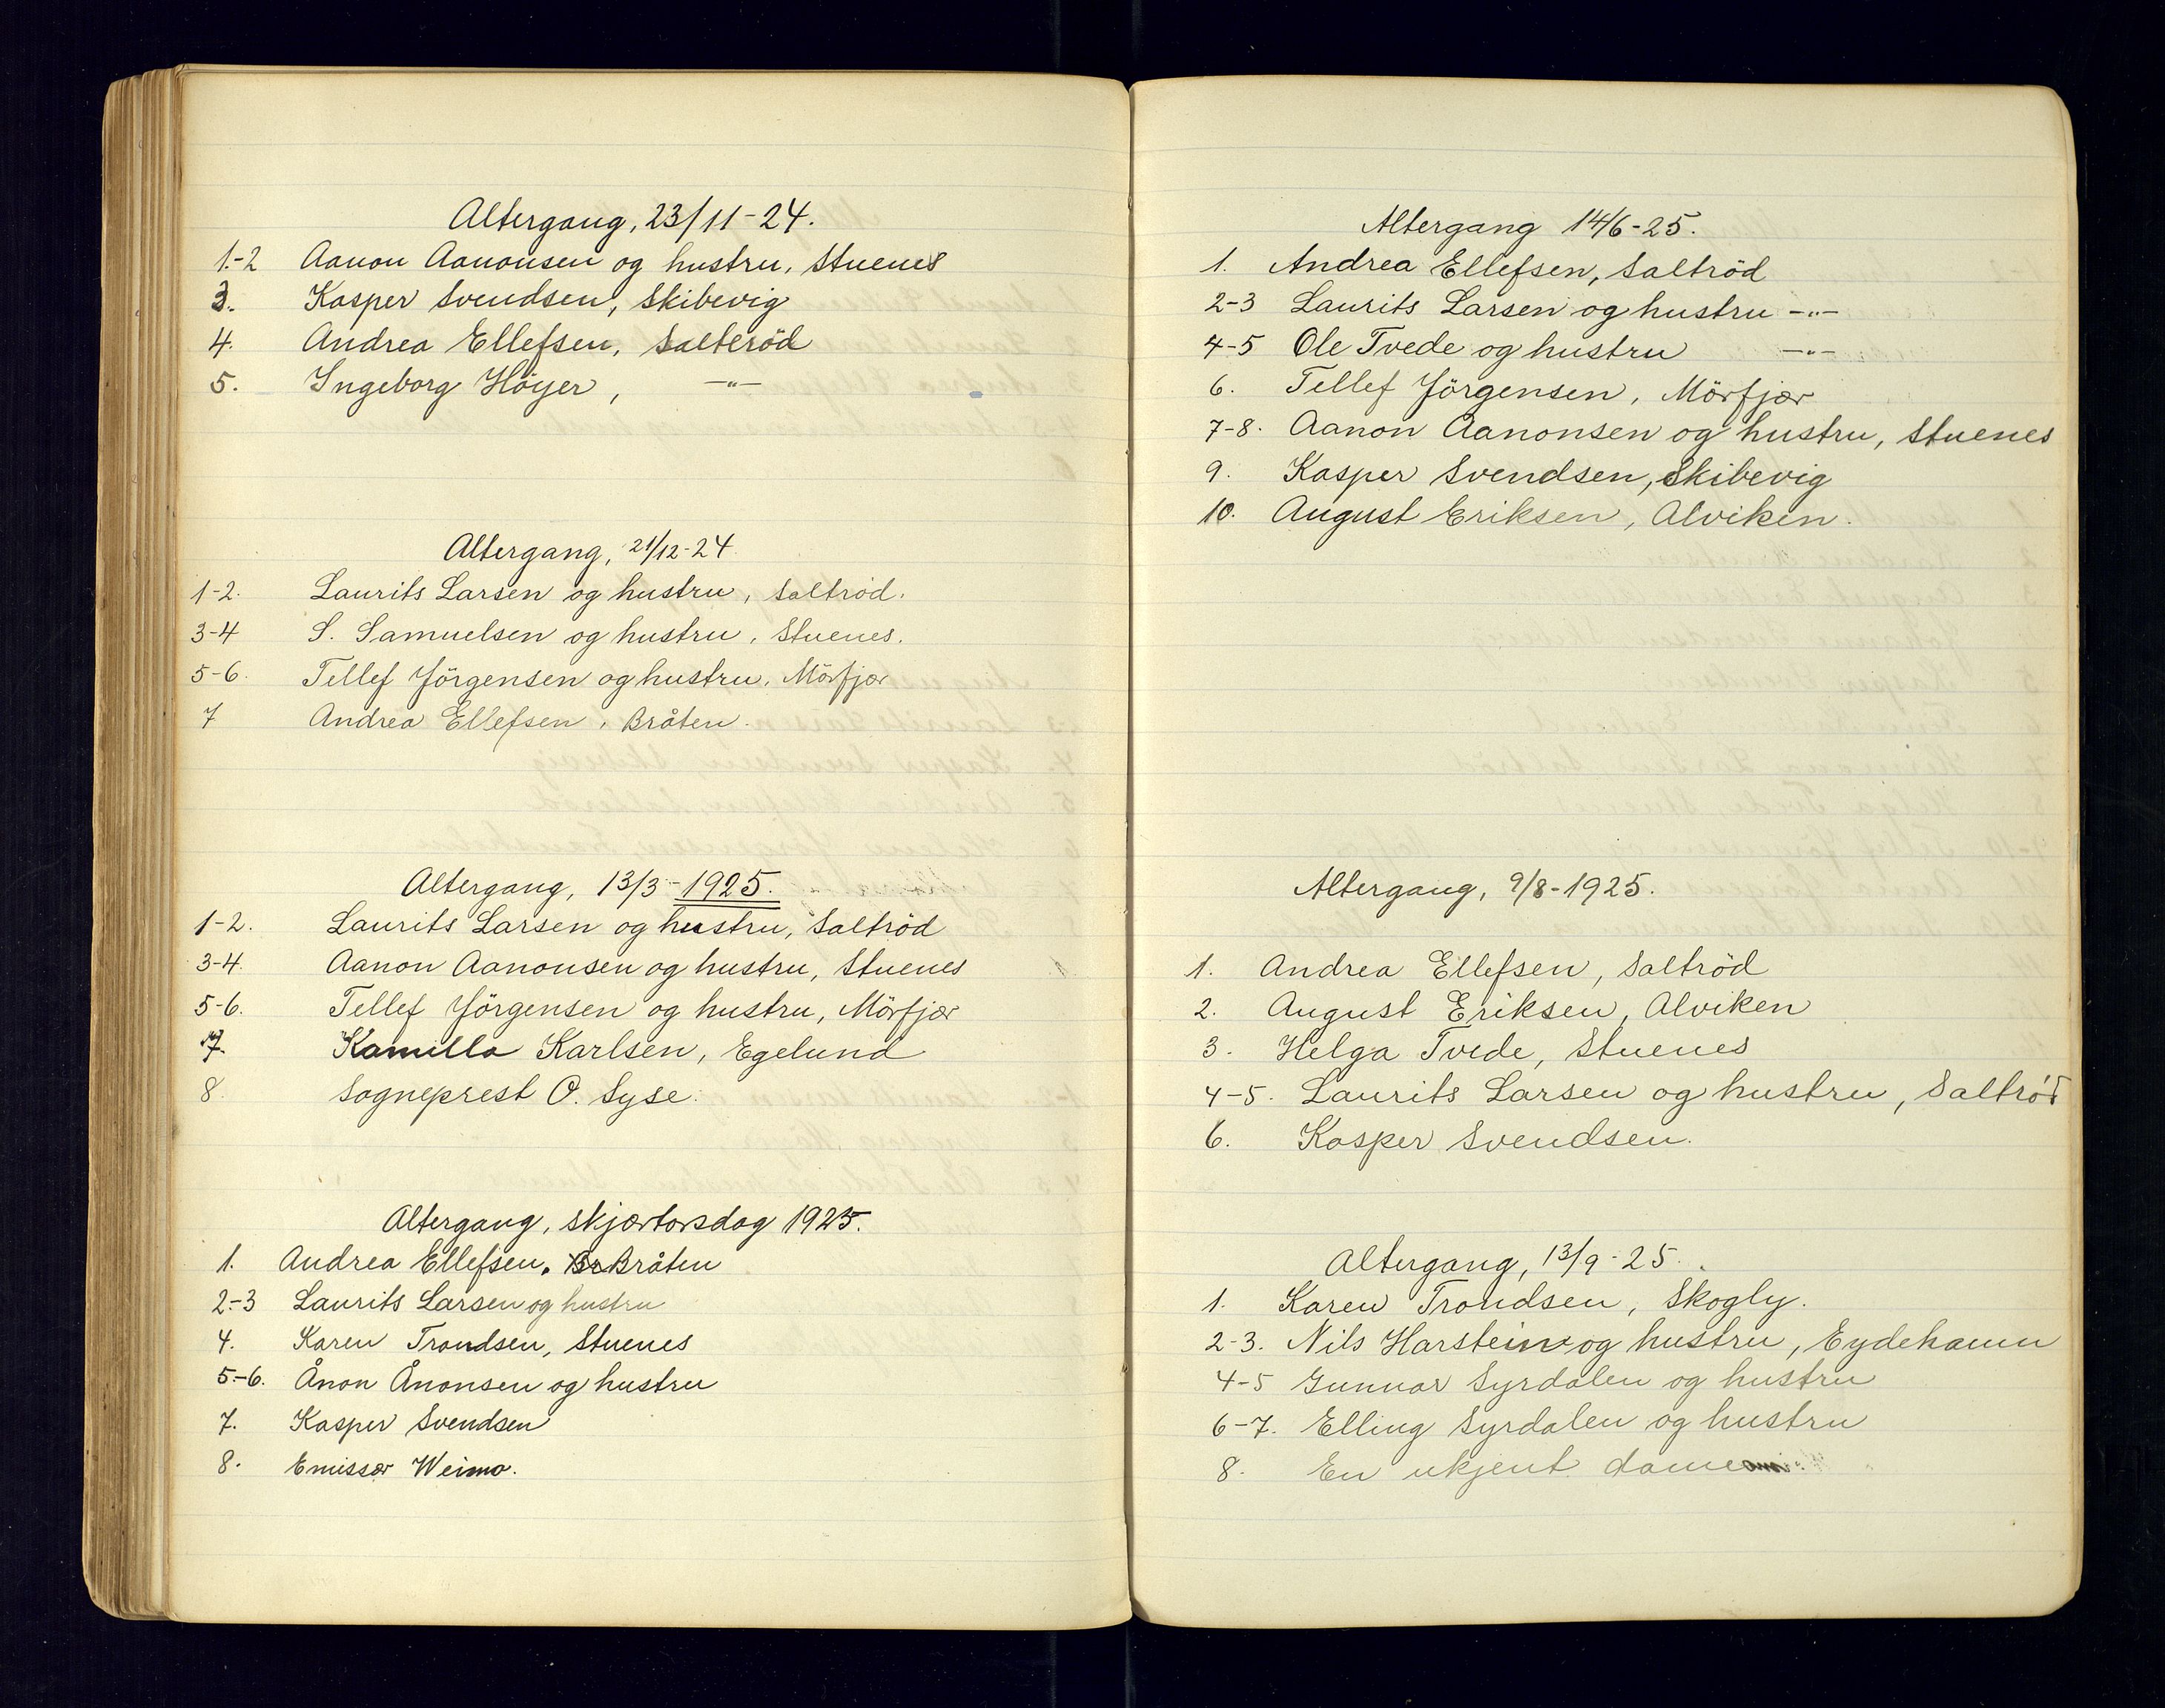 Altergang, 23/11-24.
1.-2 Aanon Aanonsen og hustru, Stuenes
3. Kasper Svendsen, Skibevig
4. Andrea Ellefsen, Salteröd
5. Ingeborg Höyer, -"-
Altergang, 21/12-24
1-2. Laurits Larsen og hustru, Saltröd.
3-4 S. Samuelsen og hustru, Stuenes.
5-6. Tellef Jörgensen og hustru, Mörfjær
7 Andrea Ellefsen, Bråten.
Altergang, 13/3-1925.
1-2. Laurits Larsen og hustru, Saltröd
3-4. Aanon Aanonsen og hustru, Stuenes
5-6. Tellef Jörgensen og hustru, Mörfjær
7. Kamilla Karlsen, Egelund
8. Sogneprest O. Syse.
Altergang, skjærtorsdag 1925.
1. Andrea Ellefsen, Bråten
2.-3 Laurits Larsen og hustru
4. Karen Trondsen, Stuenes
5.-6. Ånon Ånonsen og hustru
7. Kasper Svendsen
8. Emissær Weimo.
Altergang 14/6-25.
1. Andrea Ellefsen, Saltröd
2-3 Laurits Larsen og hustru -"-
4-5 Ole Tvede og hustru -"-
6. Tellef Jörgensen, Mörfjær
7-8. Aanon Aanonsen og hustru, Stuenes
9. Kasper Svendsen, Skibevig
10. August Eriksen, Alviken.
Altergang, 9/8-1925.
1. Andrea Ellefsen, Saltröd
2. August Eriksen, Alviken
3. Helga Tvede, Stuenes
4-5. Laurits Larsen og hustru, Saltröd
6. Kasper Svendsen.
Altergang, 13/9-25.
1. Karen Trondsen, Skogly.
2-3. Nils Harstein og hustru, Eydehavn
4-5 Gunnar Syrdalen og hustru
6-7. Elling Syrdalen og hustru
8. En ukjent dame